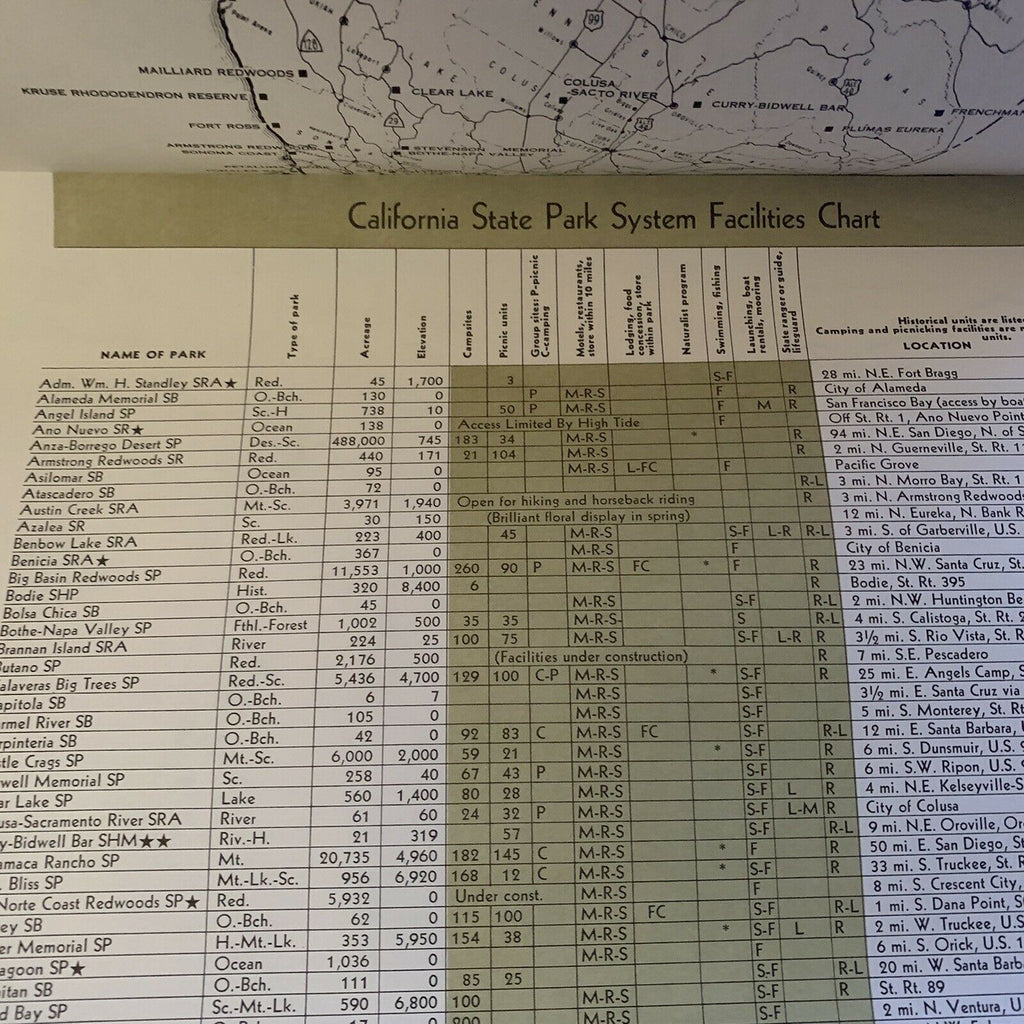 99
128
LAKE
COLUSA
BUTTE
PLUMAS
MAILLIARD REDWOODS
KRUSE RHODODENDRON RESERVE
CLEAR LAKE
COLUSA
-SACTO RIVER
CURRY-BIDWELL BAR
FRENCHMAN
29
FORT ROSS
PLUMAS EUREKA
STEVENSON MEMORIAL
BOTHE-NAPA VALLEY
SONOMA COAST
California State Park System Facilities Chart
NAME OF PARK
Type of park
Acreage
Elevation
Campsites
Picnic units
Group sites: P-picnic C-camping
Motels, restaurants, store within 10 miles
Lodging, food concession, store within park
Naturalist program
Swimming, fishing
Launching, boat rentals, mooring
State ranger or guide, lifeguard
Historical units are liste
Camping and picnicking facilities are n
units.
LOCATION
Adm. Wm. H. Standley SRA★ Red. 45 1,700 3 S-F 28 mi. N.E. Fort Bragg
Alameda Memorial SB O.-Bch. 130 0 P M-R-S F R City of Alameda
Angel Island SP Sc.-H 738 10 50 P M-R-S F M R San Francisco Bay (access by boa
Ano Nuevo SR★ Ocean 138 0 Access Limited By High Tide F Off St. Rt. 1, Ano Nuevo Point
Anza-Borrego Desert SP Des.-Sc. 488,000 745 183 34 M-R-S * R 94 mi. N.E. San Diego, N. of S
Armstrong Redwoods SR Red. 440 171 21 104 M-R-S R 2 mi. N. Guerneville, St. Rt. 1
Asilomar SB Ocean 95 0 M-R-S L-FC F Pacific Grove
Atascadero SB O.-Bch. 72 0 R-L 3 mi. N. Morro Bay, St. Rt. 1
Austin Creek SRA Mt.-Sc. 3,971 1,940 Open for hiking and horseback riding R 3 mi. N. Armstrong Redwoods
Azalea SR Sc. 30 150 (Brilliant floral display in spring) 12 mi. N. Eureka, N. Bank R
Benbow Lake SRA Red.-Lk. 223 400 45 M-R-S S-F L-R R-L 3 mi. S. of Garberville, U.S.
Benicia SRA★ O.-Bch. 367 0 M-R-S F City of Benicia
Big Basin Redwoods SP Red. 11,553 1,000 260 90 P M-R-S FC * F R 23 mi. N.W. Santa Cruz, St.
Bodie SHP Hist. 320 8,400 6 R Bodie, St. Rt. 395
Bolsa Chica SB O.-Bch. 45 0 M-R-S S-F R-L 2 mi. N.W. Huntington Be
Bothe-Napa Valley SP Fthl.-Forest 1,002 500 35 35 M-R-S- S R-L 4 mi. S. Calistoga, St. Rt. 2
Brannan Island SRA River 224 25 100 75 M-R-S S-F L-R R 3½ mi. S. Rio Vista, St. R
utano SP Red. 2,176 500 (Facilities under construction) R 7 mi. S.E. Pescadero
alaveras Big Trees SP Red.-Sc. 5,436 4,700 129 100 C-P M-R-S * S-F R 25 mi. E. Angels Camp, S
apitola SB O.-Bch. 6 7 M-R-S S-F 3½ mi. E. Santa Cruz via
rmel River SB O.-Bch. 105 0 M-R-S S-F 5 mi. S. Monterey, St. Rt
rpinteria SB O.-Bch. 42 0 92 83 C M-R-S FC S-F R-L 12 mi. E. Santa Barbara, U
stle Crags SP Mt.-Sc. 6,000 2,000 59 21 M-R-S * S-F R 6 mi. S. Dunsmuir, U.S.
well Memorial SP Sc. 258 40 67 43 P M-R-S S-F R 6 mi. S.W. Ripon, U.S.
ar Lake SP Lake 560 1,400 80 28 M-R-S S-F L R 4 mi. N.E. Kelseyville-S
usa-Sacramento River SRA River 61 60 24 32 P M-R-S S-F L-M R City of Colusa
y-Bidwell Bar SHM★★ Riv.-H. 21 319 57 M-R-S S-F R-L 9 mi. N.E. Oroville, Oro
amaca Rancho SP Mt. 20,735 4,960 182 145 C M-R-S * F R 50 mi. E. San Diego, St
. Bliss SP Mt.-Lk.-Sc. 956 6,920 168 12 C M-R-S * S-F R 33 mi. S. Truckee, St. R
Norte Coast Redwoods SP★ Red. 5,932 0 Under const. M-R-S F 8 mi. S. Crescent City,
ey SB O.-Bch. 62 0 115 100 M-R-S FC S-F R-L 1 mi. S. Dana Point, S
er Memorial SP H.-Mt.-Lk. 353 5,950 154 38 M-R-S * S-F L R 2 mi. W. Truckee, U.S
agoon SP★ Ocean 1,036 0 M-R-S F 6 mi. S. Orick, U.S. 1
itan SB O.-Bch. 111 0 85 25 S-F R-L 20 mi. W. Santa Barb
d Bay SP Sc.-Mt.-Lk. 590 6,800 100 M-R-S S-F R St. Rt. 89
0 M-R-S S-F 2 mi. N. Ventura, U